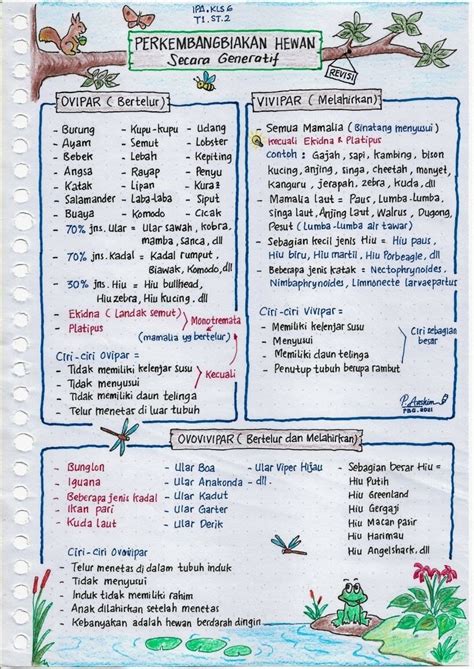 IPA.KLS 6
T1.ST.2
PERKEMBANGBIAKAN HEWAN
Secara Generatif
REVISI
OVIPAR ( Bertelur)
- Burung - Kupu-kupu - Udang
- Ayam - Semut - Lobster
- Bebek - Lebah - Kepiting
- Angsa - Rayap - Penyu
- Katak - Lipan - Kura²
- Salamander - Laba-laba - Siput
- Buaya - Komodo - Cicak
- 70% jns. Ular = Ular sawah, kobra,
mamba, sanca, dll
- 70% jns. Kadal = Kadal rumput,
Biawak, Komodo, dll
- 30% jns. Hiu = Hiu bullhead,
Hiu zebra, Hiu kucing, dll
- Ekidna ( Landak semut)
- Platipus
Monotremata
(mamalia yg bertelur)
Ciri-ciri Ovipar =
- Tidak memiliki kelenjar susu
- Tidak menyusui
- Tidak memiliki daun telinga
- Telur menetas di luar tubuh
Kecuali
VIVIPAR ( Melahirkan)
- Semua Mamalia ( Binatang menyusui)
Kecuali Ekidna & Platipus
contoh : Gajah, sapi, kambing, bison
kucing, anjing, singa, cheetah, monyet,
kanguru, jerapah, zebra, kuda, dll
- Mamalia laut = Paus, Lumba-lumba,
singa laut, Anjing laut, Walrus, Dugong,
Pesut ( Lumba-lumba air tawar)
- Sebagian kecil jenis Hiu = Hiu paus,
Hiu biru, Hiu martil, Hiu Porbeagle, dll
- Beberapa jenis katak = Nectophrynoides,
Nimbaphrynoides, Limnonecte larvaepartus
Ciri-ciri Vivipar =
- Memiliki kelenjar susu
- Menyusui
- Memiliki daun telinga
- Penutup tubuh berupa rambut
Ciri sebagian
besar
PBG.2021
OVOVIVIPAR ( Bertelur dan Melahirkan)
- Bunglon - Ular Boa - Ular Viper Hijau - Sebagian besar Hiu =
- Iguana - Ular Anakonda - dll. Hiu Putih
- Beberapa jenis kadal - Ular Kadut Hiu Greenland
- Ikan pari - Ular Garter Hiu Gergaji
- Kuda laut - Ular Derik Hiu Macan pasir
Hiu Harimau
Hiu Angelshark, dll
Ciri-ciri Ovovipar
- Telur menetas di dalam tubuh induk
- Tidak menyusui
- Induk tidak memiliki rahim
- Anak dilahirkan setelah menetas
- Kebanyakan adalah hewan berdarah dingin